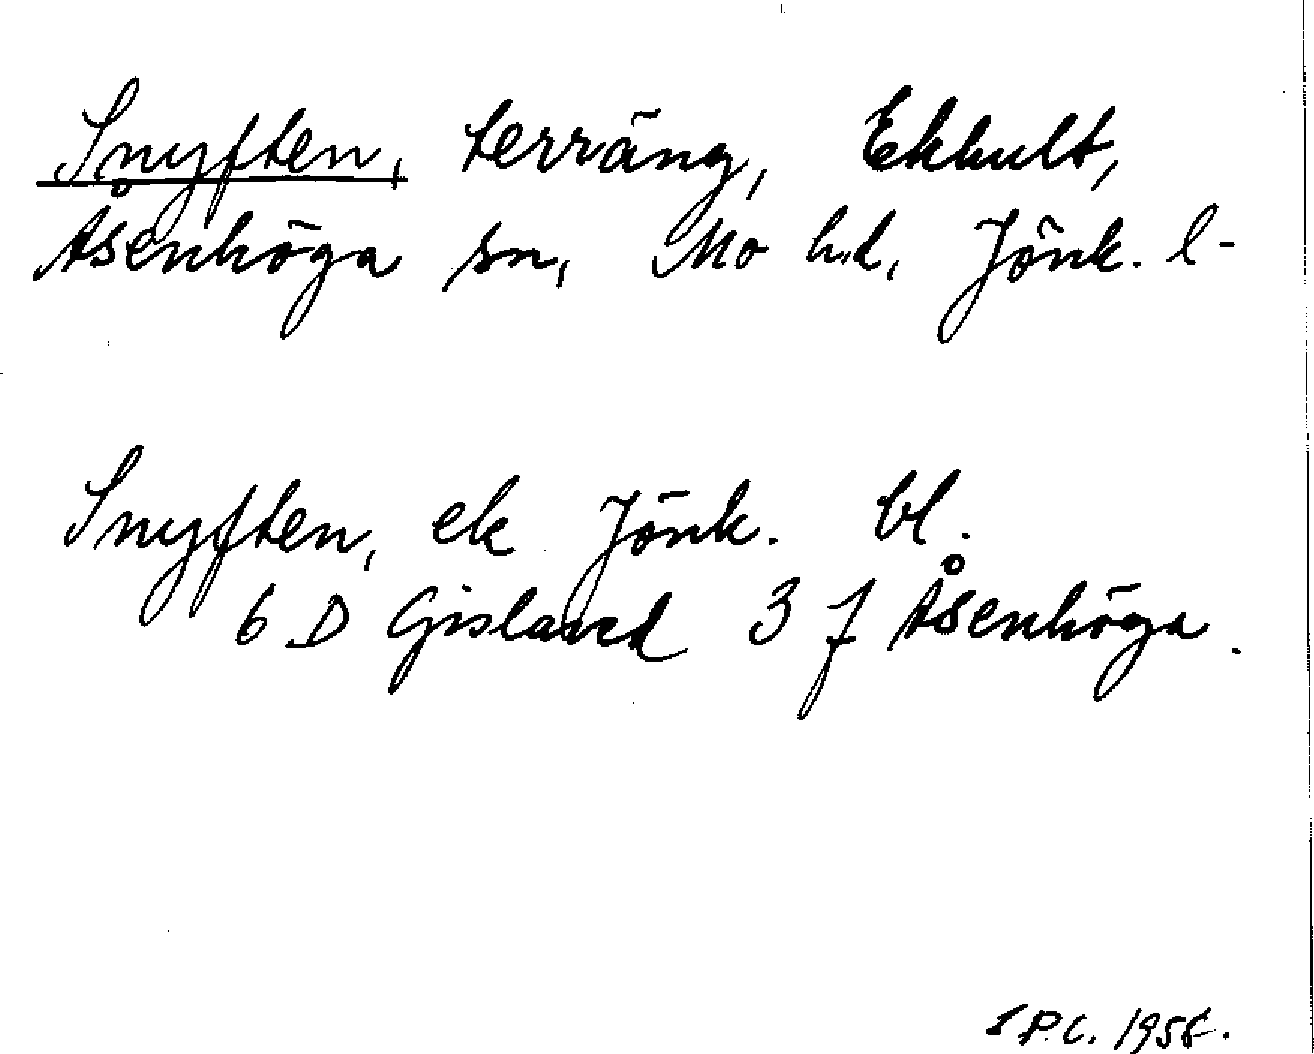 Snyften, terräng, Ekhult,
Åsenhöga sn, Mo hd, Jönk. l-
Snyften, ek Jönk. bl.
6 D Gislaved 3 f Åsenhöga.
P.C.